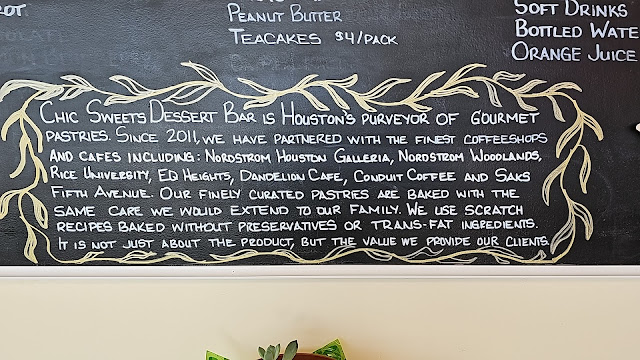 Peanut Butter
Teacakes $4/pack
Soft Drinks
Bottled Wate
Orange Juice
Chic Sweets Dessert Bar is Houston's purveyor of gourmet
pastries. Since 2011, we have partnered with the finest coffeeshops
and cafes including: Nordstrom Houston Galleria, Nordstrom Woodlands,
Rice University, EQ Heights, Dandelion Cafe, Conduit Coffee and Saks
Fifth Avenue. Our finely curated pastries are baked with the
same care we would extend to our family. We use scratch
recipes baked without preservatives or trans-fat ingredients.
It is not just about the product, but the value we provide our clients.